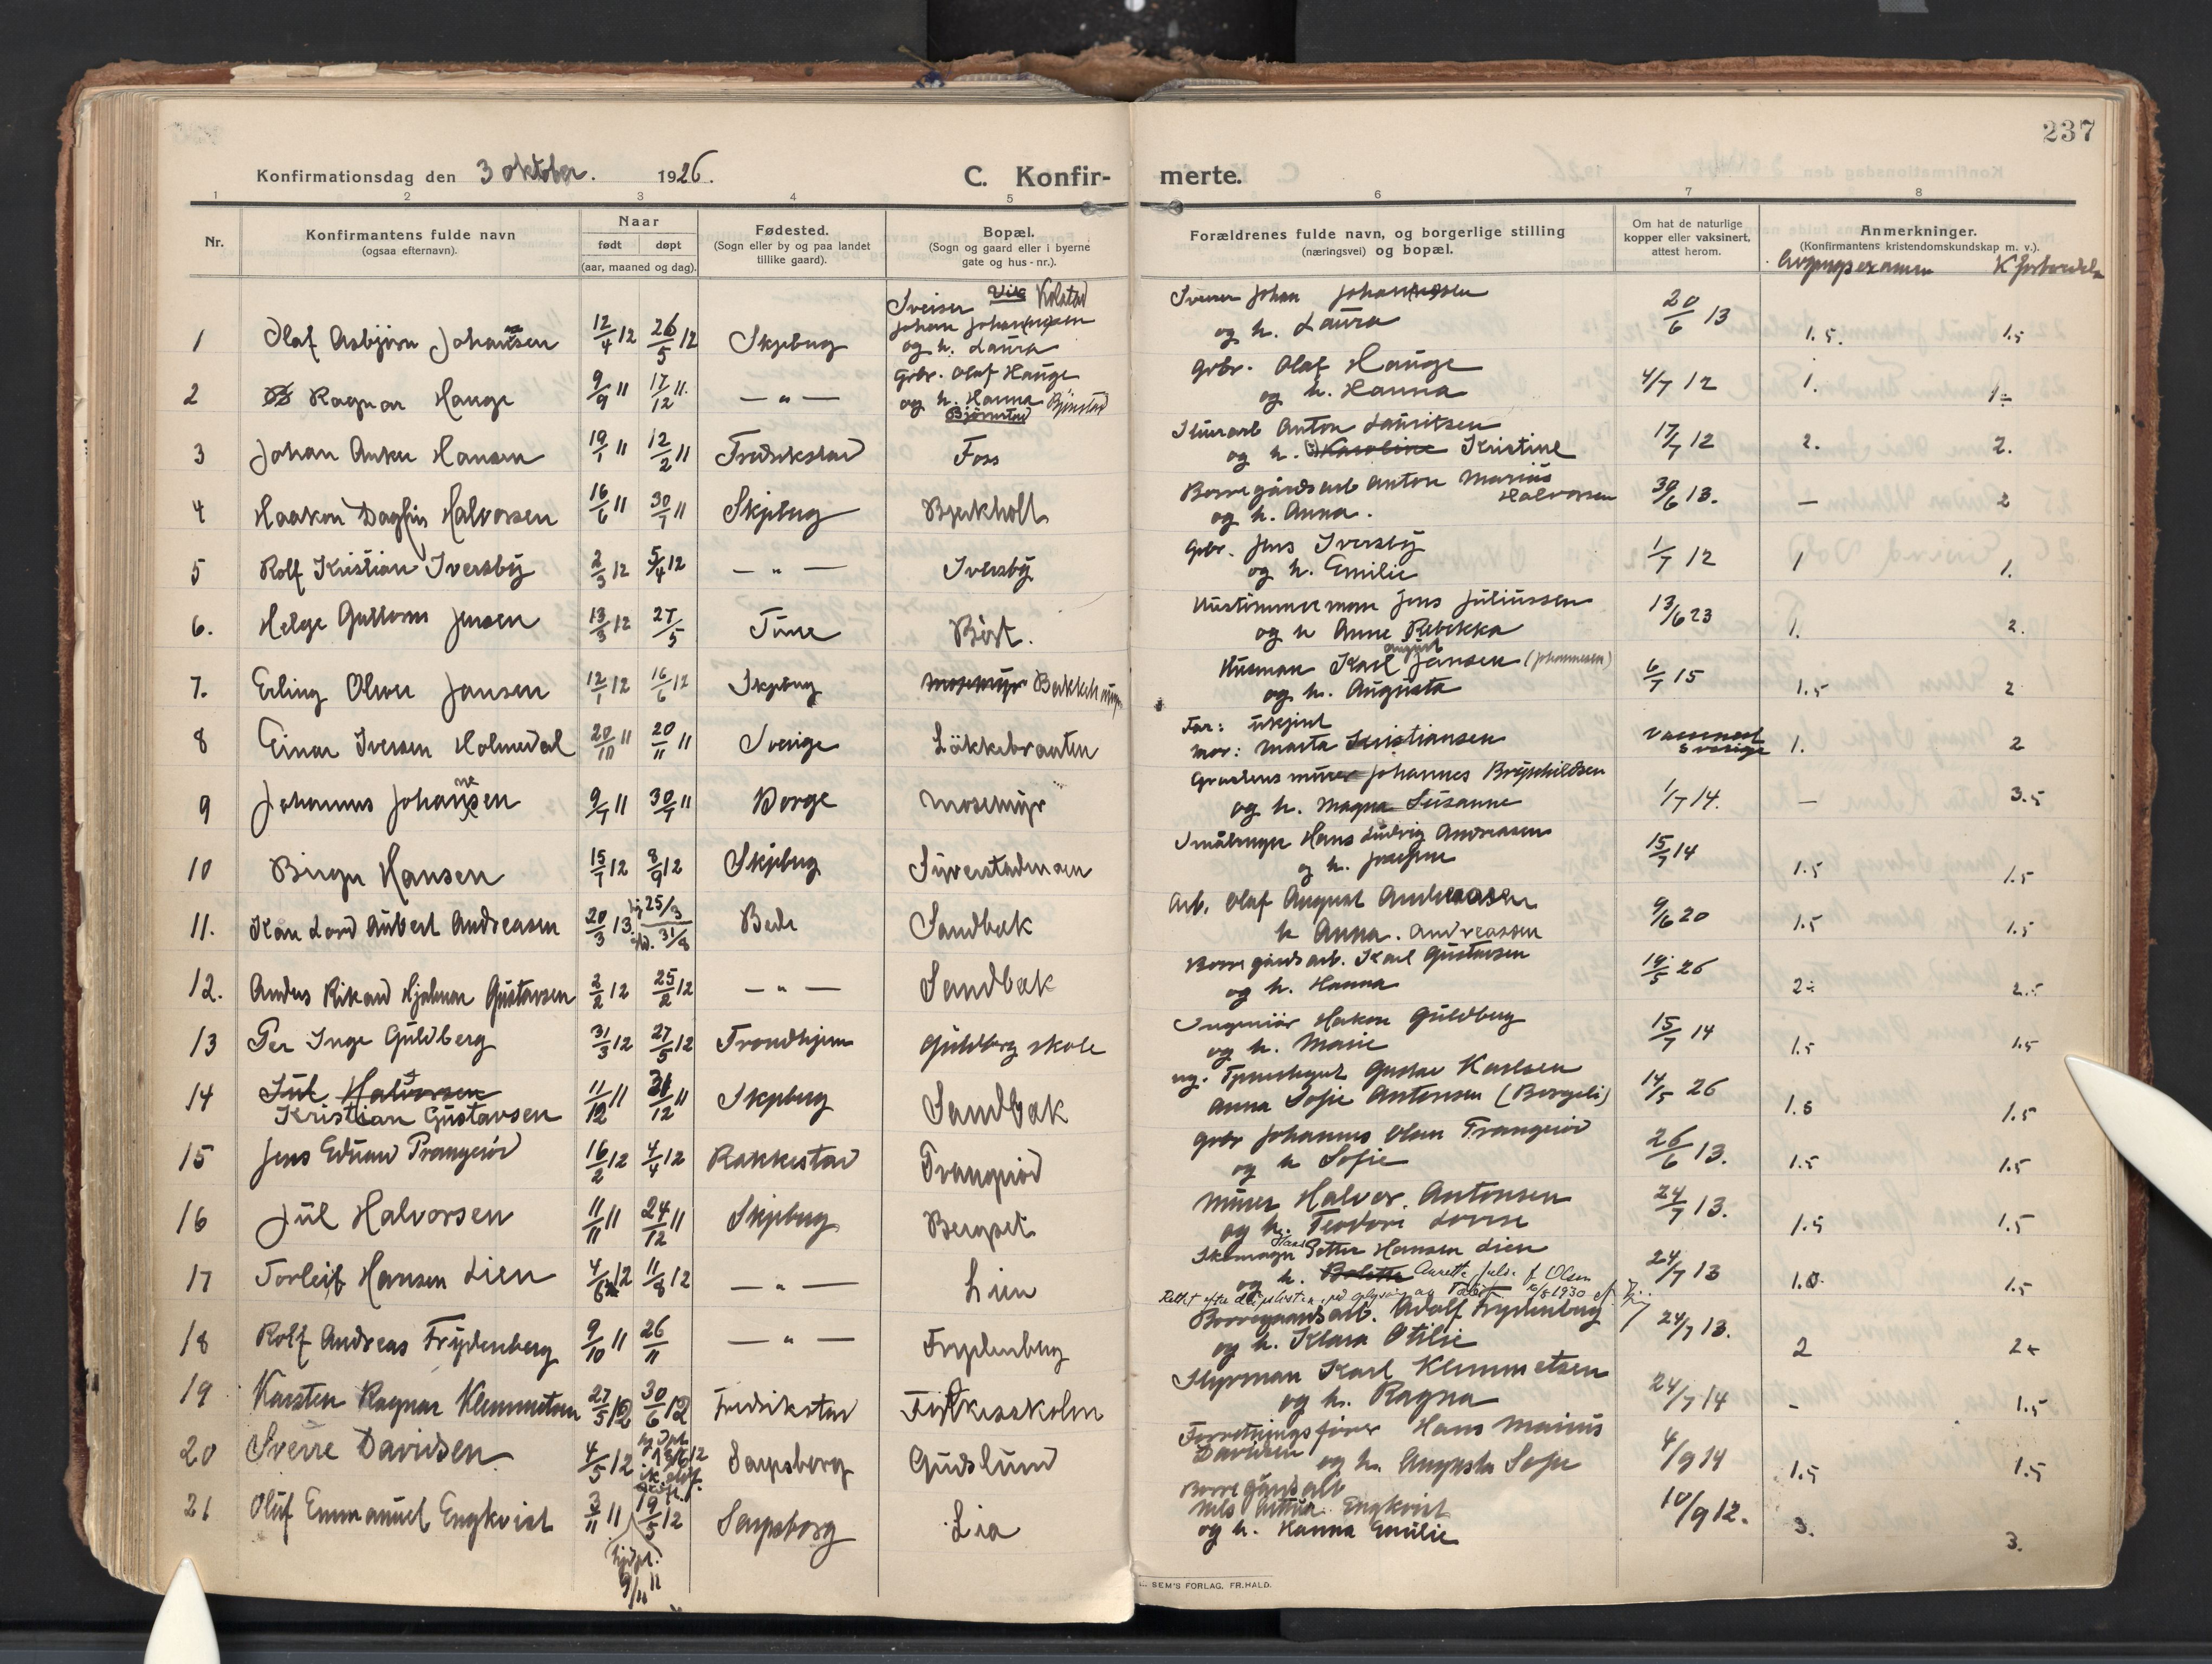 237
Konfirmationsdag den 3 oktober. 1926. C. Konfir- merte.
1 2 3 4 5 6 7 8
Nr. Konfirmantens fulde navn (ogsaa efternavn). Naar født døpt (aar, maaned og dag). Fødested. (Sogn eller by og paa landet tillike gaard). Bopæl. (Sogn og gaard eller i byerne gate og hus-nr.). Forældrenes fulde navn, og borgerlige stilling (næringsvei) og bopæl. Om hat de naturlige kopper eller vaksinert, attest herom. Anmerkninger. (Konfirmantens kristendomskundskap m. v.).
1 Olaf Asbjørn Johansen 12/4 12 26/5 12 Skjeberg Sveiser Vik Kolstad Johan Johannesen og h. Laura Sveiser Johan Johannesen og h. Laura 20/6 13 1.5. 1.5
2 Ragnar Hauge 9/9 11 17/12 11. — " — Grbr. Olaf Hauge og h. Hanna Bjørnstad Grbr. Olaf Hauge og h. Hanna 4/7 12 1. 1
3 Johan Anker Hansen 19/1 11 12/2 11 Fredrikstad Foss Anton Lauritsen og h. Karoline Kristine 17/7 12 2. 2.
4 Haakon Dagfin Halvorsen 16/6 11 30/7 11 Skjeberg Bjerkholt Borregårdsarb Anton Marius Halvorsen og h. Anna. 30/6 13. — 2
5 Rolf Kristian Iversby 2/3 12 5/4 12 — " — Iversby Grbr. Jens Iversby og h. Emilie 1/7 12 1 1.
6. Helge Guttorm Jensen 13/3 12 27/5 Tune Börst. Hustimmerman Jens Juliussen og h Anne Rebekka 13/6 23 1. 2.
7. Erling Oliver Jansen 12/1 12 16/6 12 Skjeberg Mosemyr Husman Karl August Jansen (Johannesen) og h. Augusta 6/7 15 1.5 2
8 Einar Iversen Holmedal 20/10 11 20/11 11 Sverige Løkkebraaten Far: ukjent Mor: Marta Kristiansen Sverige 1. 2
9 Johannes Johannesen 9/7 11 30/7 11 Borge Mosemyr Johannes Brynhildsen og h. Magna Susanne 1/7 14. — 3.5
10 Birger Hansen 15/7 12 8/9 12 Skjeberg Syverstadmoen Småbruger Hans Ludvig Andreasen og h. Josefine 15/7 14 1.5 1.5
11. Kåre Lord Aubert Andreasen 20/3 13 25/3 31/8 Sandbæk Arb. Olaf August Andreassen h Anna. Andreassen 9/6 20 1.5 1.5
12. Anders Rikard Hjalmar Gustavsen 2/2 12 25/2 12 — " — Sandbæk Borregårdsarb. Karl Gustavsen og h. Hanna 19/5 26 2 2.5
13 Per Inge Guldberg 31/3 12 27/5 12 Trondhjem Guldberg skole Ingeniør Hakon Guldberg og h. Marie 15/7 14 1.5 1.5
14 Jul Halvorsen Kristian Gustavsen 11/12 11 31/12 11 Skjeberg Sandbæk ug. Gustav Karlsen Anna Sofie Antonsen (Borgeli) 14/5 26 1.5 1.5
15 Jens Edvard Trangerød 16/2 12 4/4 12 Rakkestad Trangerød Grbr Johannes Olsen Trangerød og h Sofie 26/6 13. 1.5 1.5
16 Jul Halvorsen 11/11 11 24/12 11 Skjeberg Bergset Murer Halvor Antonsen og h. Teodora Lovise 24/7 13. 1.5 1.5
17 Torleif Hansen Lien 4/6 12 11/8 12 — " — Lien Skomager Hans Petter Hansen Lien og h. Bolette Anette f. Olsen 24/7 13 1.0 1.5
18 Rolf Andreas Frydenberg 9/10 11 26/11 — " — Frydenberg Borregaardsarb. Adolf Frydenberg og h. Klara Otilie 24/7 13. 2 2
19 Karsten Ragnar Klemmetsen 27/5 12 30/6 12 Fredrikstad Styrman Karl Klemmetsen og h. Ragna 24/7 14 - 1.5
20 Sverre Davidsen 4/5 12 Sarpsborg Gudslund Forretningsfører Hans Marius Davidsen og h. Augusta Sofie 4/9 14 1.5 1.5
21 Oluf Emmanuel Engkvist 3/11 11 19/5 12 Sarpsborg Lia Borregårdsarb Nils Arthur Engkvist og h. Hanna Emilie 10/9 12. 3. 3.
hjdpt. 9/11 11
SEM'S FORLAG. FR.HALD.